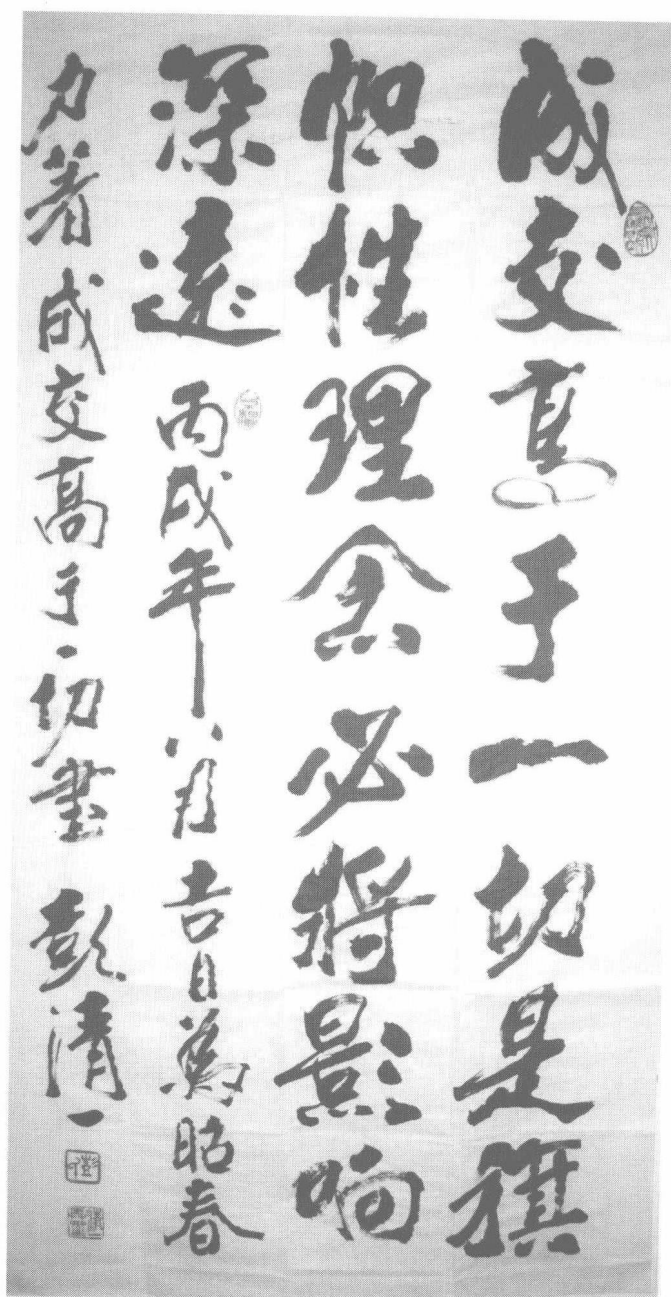 成交高于一切是旗
帜性理念必将影响
深远 丙戌年八月吉日为昭春
力著成交高于一切书 彭清一